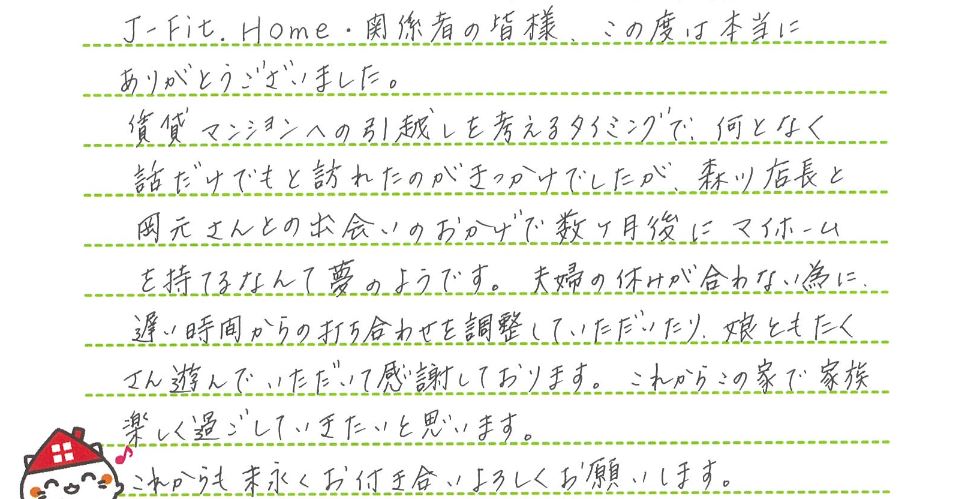 J-Fit.Home・関係者の皆様、この度は本当に
ありがとうございました。
賃貸マンションへの引越しを考えるタイミングで、何となく
話だけでもと訪れたのがきっかけでしたが、森川店長と
岡元さんとの出会いのおかげで数ヶ月後にマイホーム
を持てるなんて夢のようです。夫婦の休みが合わない為に、
遅い時間からの打ち合わせを調整していただいたり、娘ともたく
さん遊んでいただいて感謝しております。これからこの家で家族
楽しく過ごしていきたいと思います。
これからも末永くお付き合いよろしくお願いします。